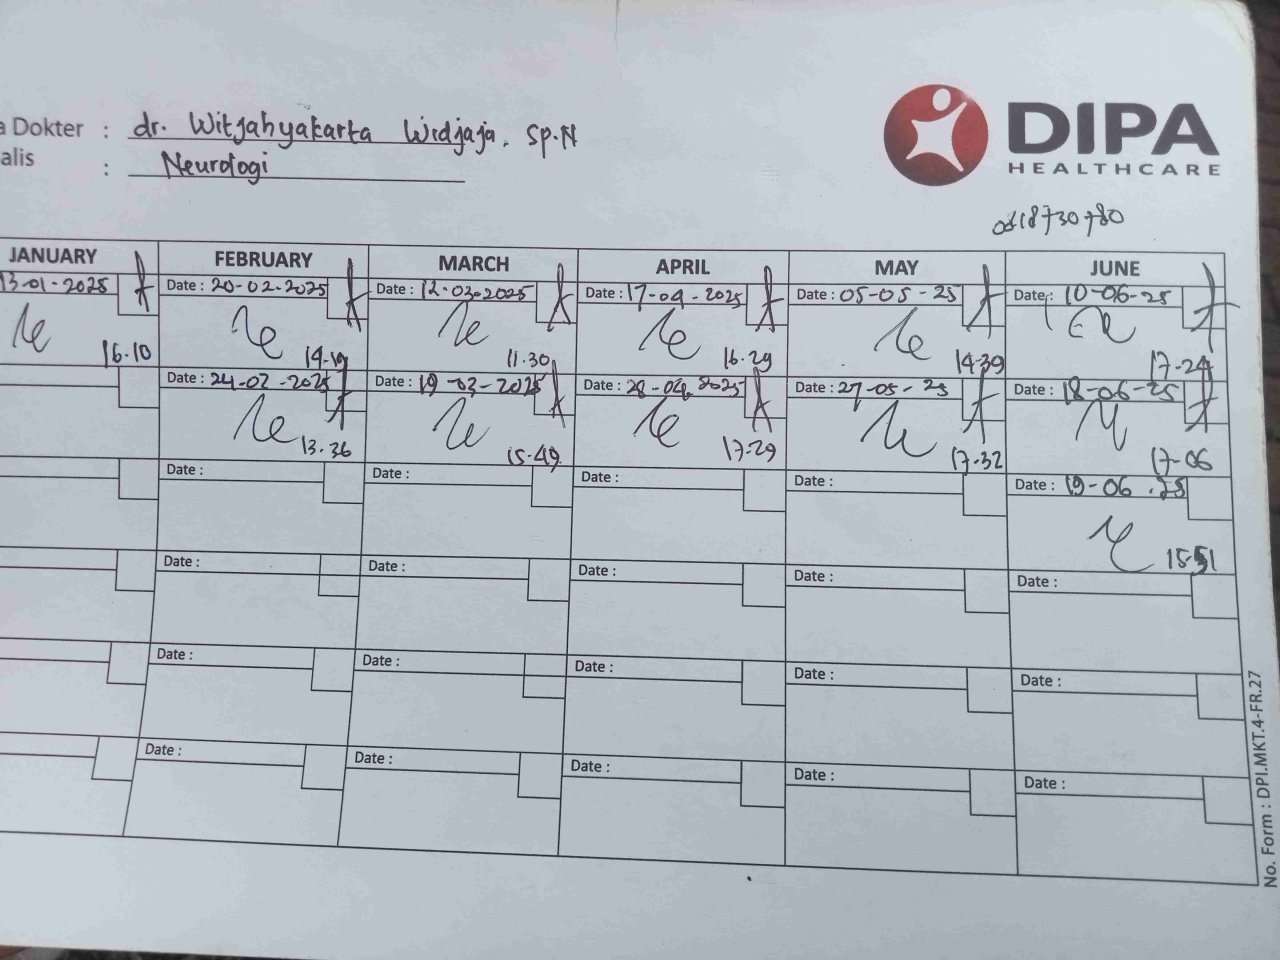 a Dokter : dr. Witjahyakarta Widjaja, Sp.N
alis : Neurologi
DIPA
HEALTHCARE
JANUARY FEBRUARY MARCH APRIL MAY JUNE
13-01-2025 Date : 20-02-2025 Date : 12-03-2025 Date : 17-04-2025 Date : 05-05-25 Date : 10-06-25
16.10 14.19 11.30 16.29 14.39 17-24
Date : 24-02-2025 Date : 19-03-2025 Date : 28-04-2025 Date : 27-05-25 18-06-25
13.36 15.49 17.29 17.32 17-06
Date : Date : Date : Date : Date : 19-06.25
15.51
Date : Date : Date : Date : Date :
Date : Date : Date : Date : Date :
Date : Date : Date : Date : Date :
No. Form : DPI.MKT.4-FR.27